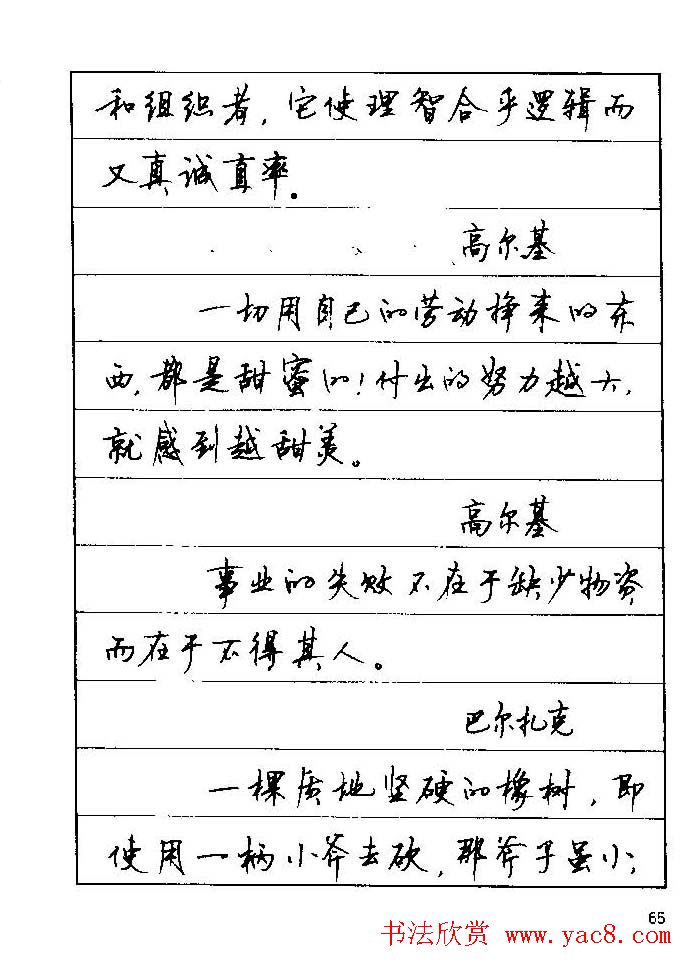 和组织者，它使理智合乎逻辑而
又真诚直率.
高尔基
一切用自己的劳动挣来的东
西，都是甜蜜的！付出的努力越大，
就感到越甜美。
高尔基
事业的失败不在于缺少物资
而在于不得其人。
巴尔扎克
一棵质地坚硬的橡树，即
使用一柄小斧去砍，那斧子虽小；
65
书法欣赏 www.yac8.com